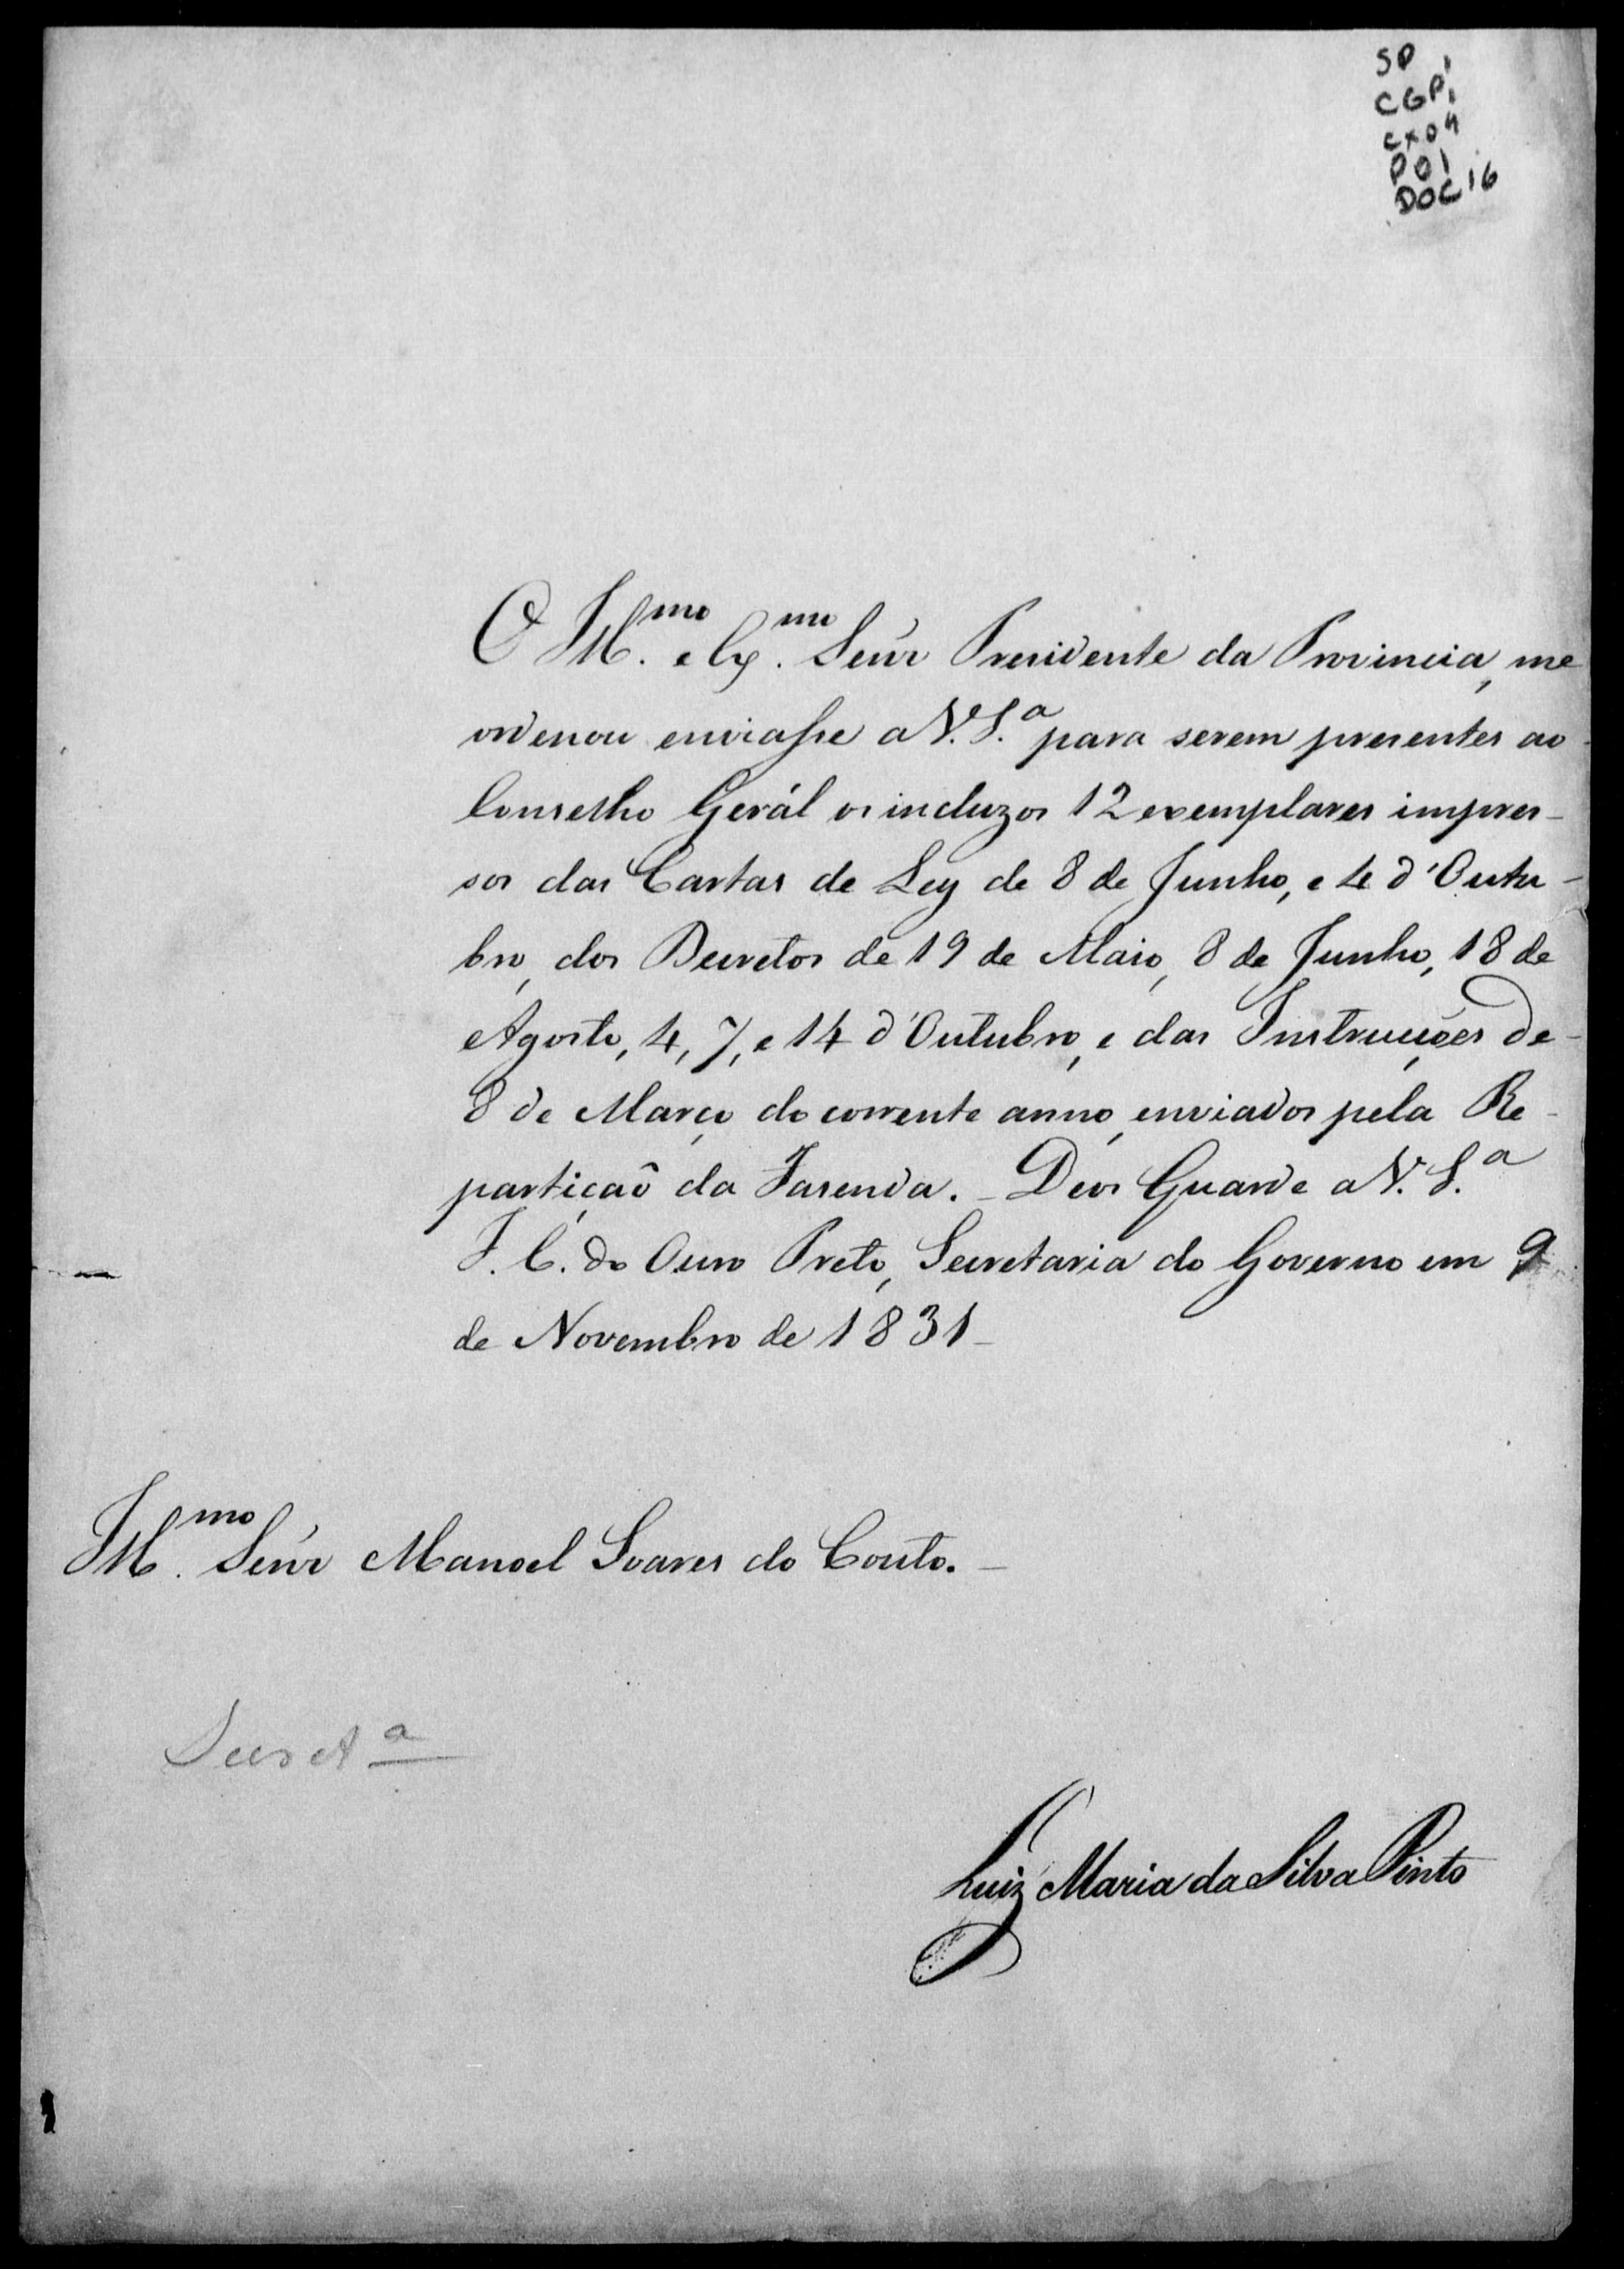 SP
CGP1
cx 04
P01
DOC 16
O Ill.mo e Ex.mo Senr Presidente da Provincia, me
ordenou enviasse a V. S.a para serem presentes ao
Conselho Gerál os incluzos 12 exemplares impres-
sos das Cartas de Ley de 8 de Junho, e 4 d'Outu-
bro, dos Decretos de 19 de Maio, 8 de Junho, 18 de
Agosto, 4, 7, e 14 d'Outubro, e das Instrucções de
8 de Março do corrente anno, enviados pela Re-
partiçaõ da Fasenda. - Deos Guarde a V. S.a
I. C. do Ouro Preto, Secretaria do Governo em 9
de Novembro de 1831 -
Ill.mo Senr Manoel Soares do Couto. -
Luiz Maria da Silva Pinto